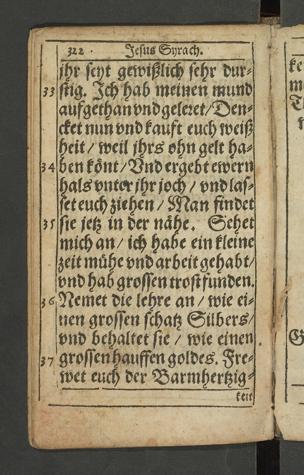 322. Jesus Syrach.
jhr seyt gewißlich sehr dur-
33 stig. Ich hab meinen mund
aufgethan vnd geleret/ Den-
cket nun vnd kauft euch weiß
heit/ weil jhrs ohn gelt ha-
34 ben könt/ Vnd ergebt ewern
hals vnter jhr joch/ vnd las-
set euch ziehen/ Man findet
35 sie jetz in der nähe. Sehet
mich an/ ich habe ein kleine
zeit mühe vnd arbeit gehabt/
vnd hab grossen trost funden.
36 Nemet die lehre an/ wie ei-
nen grossen schatz Silbers/
vnd behaltet sie/ wie einen
37 grossen hauffen goldes. Fre-
wet euch der Barmhertzig-
keit